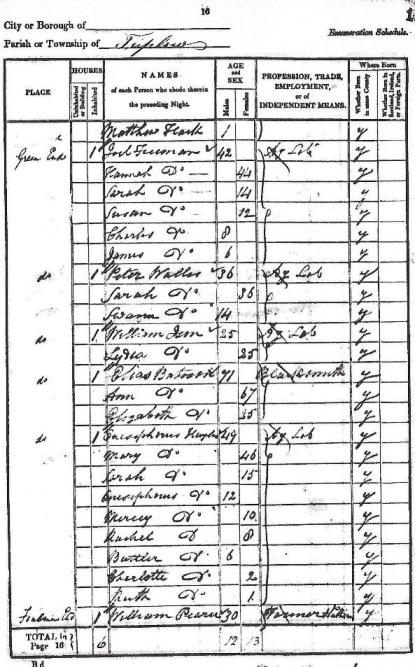 16
City or Borough of
Enumeration Schedule.
Parish or Township of Triplow
PLACE
HOUSES
Uninhabited or Building
Inhabited
NAMES of each Person who abode therein the preceding Night.
AGE and SEX
Males
Females
PROFESSION, TRADE, EMPLOYMENT, or of INDEPENDENT MEANS.
Where Born
Whether Born in same County
Whether Born in Scotland, Ireland, or Foreign Parts.
Matthew 1 y
Green End 1 Joel Freeman 42 Ag Lab y
Hannah Do 44 y
Sarah Do 14 y
Susan Do 12 y
Charles Do 8 y
James Do 6 y
do 1 Peter Wallis 36 Ag Lab y
Sarah Do 36 y
Do 14 y
do 1 William 25 Ag Lab y
Lydia Do 25 y
do 1 Elias 71 Blacksmith y
Ann Do 67 y
Elizabeth Do 35 y
do 1 Onesephorus 49 Ag Lab y
Mary Do 46 y
Sarah Do 15 y
Onesephorus Do 12 y
Mercy Do 10 y
Rachel Do 8 y
Do 6 y
Charlotte Do 2 y
Ruth Do 1 y
1 William 30 Farmer y
TOTAL in Page 16 6 12 13